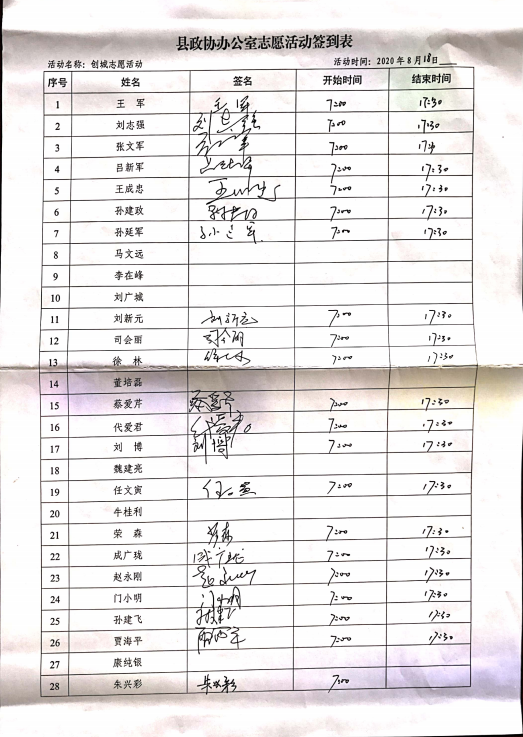 县政协办公室志愿活动签到表
活动名称：创城志愿活动 活动时间：2020年8月18日
序号 姓名 签名 开始时间 结束时间
1 王 军 王军 7:00 17:30
2 刘志强 刘志强 7:00 17:30
3 张文军 7:00
4 吕新军 7:00 17:30
5 王成忠 7:00 17:30
6 孙建政 7:00 17:30
7 孙延军 7:00 17:30
8 马文远
9 李在峰
10 刘广城
11 刘新元 刘新元 7:00 17:30
12 司会丽 司会丽 7:00 17:30
13 徐 林 徐林 7:00 17:30
14 董培磊
15 蔡爱芹 蔡爱芹 7:00 17:30
16 代爱君 代爱君 7:00 17:30
17 刘 博 刘博 7:00 17:30
18 魏建亮
19 任文寅 7:00 17:30
20 牛桂利
21 荣 森 荣森 7:00 17:30
22 成广珑 成广珑 7:00 17:30
23 赵永刚 7:00 17:30
24 门小明 门小明 7:00 17:30
25 孙建飞 7:00 17:30
26 贾海平 7:00 17:30
27 康纯银
28 朱兴彩 朱兴彩 7:00